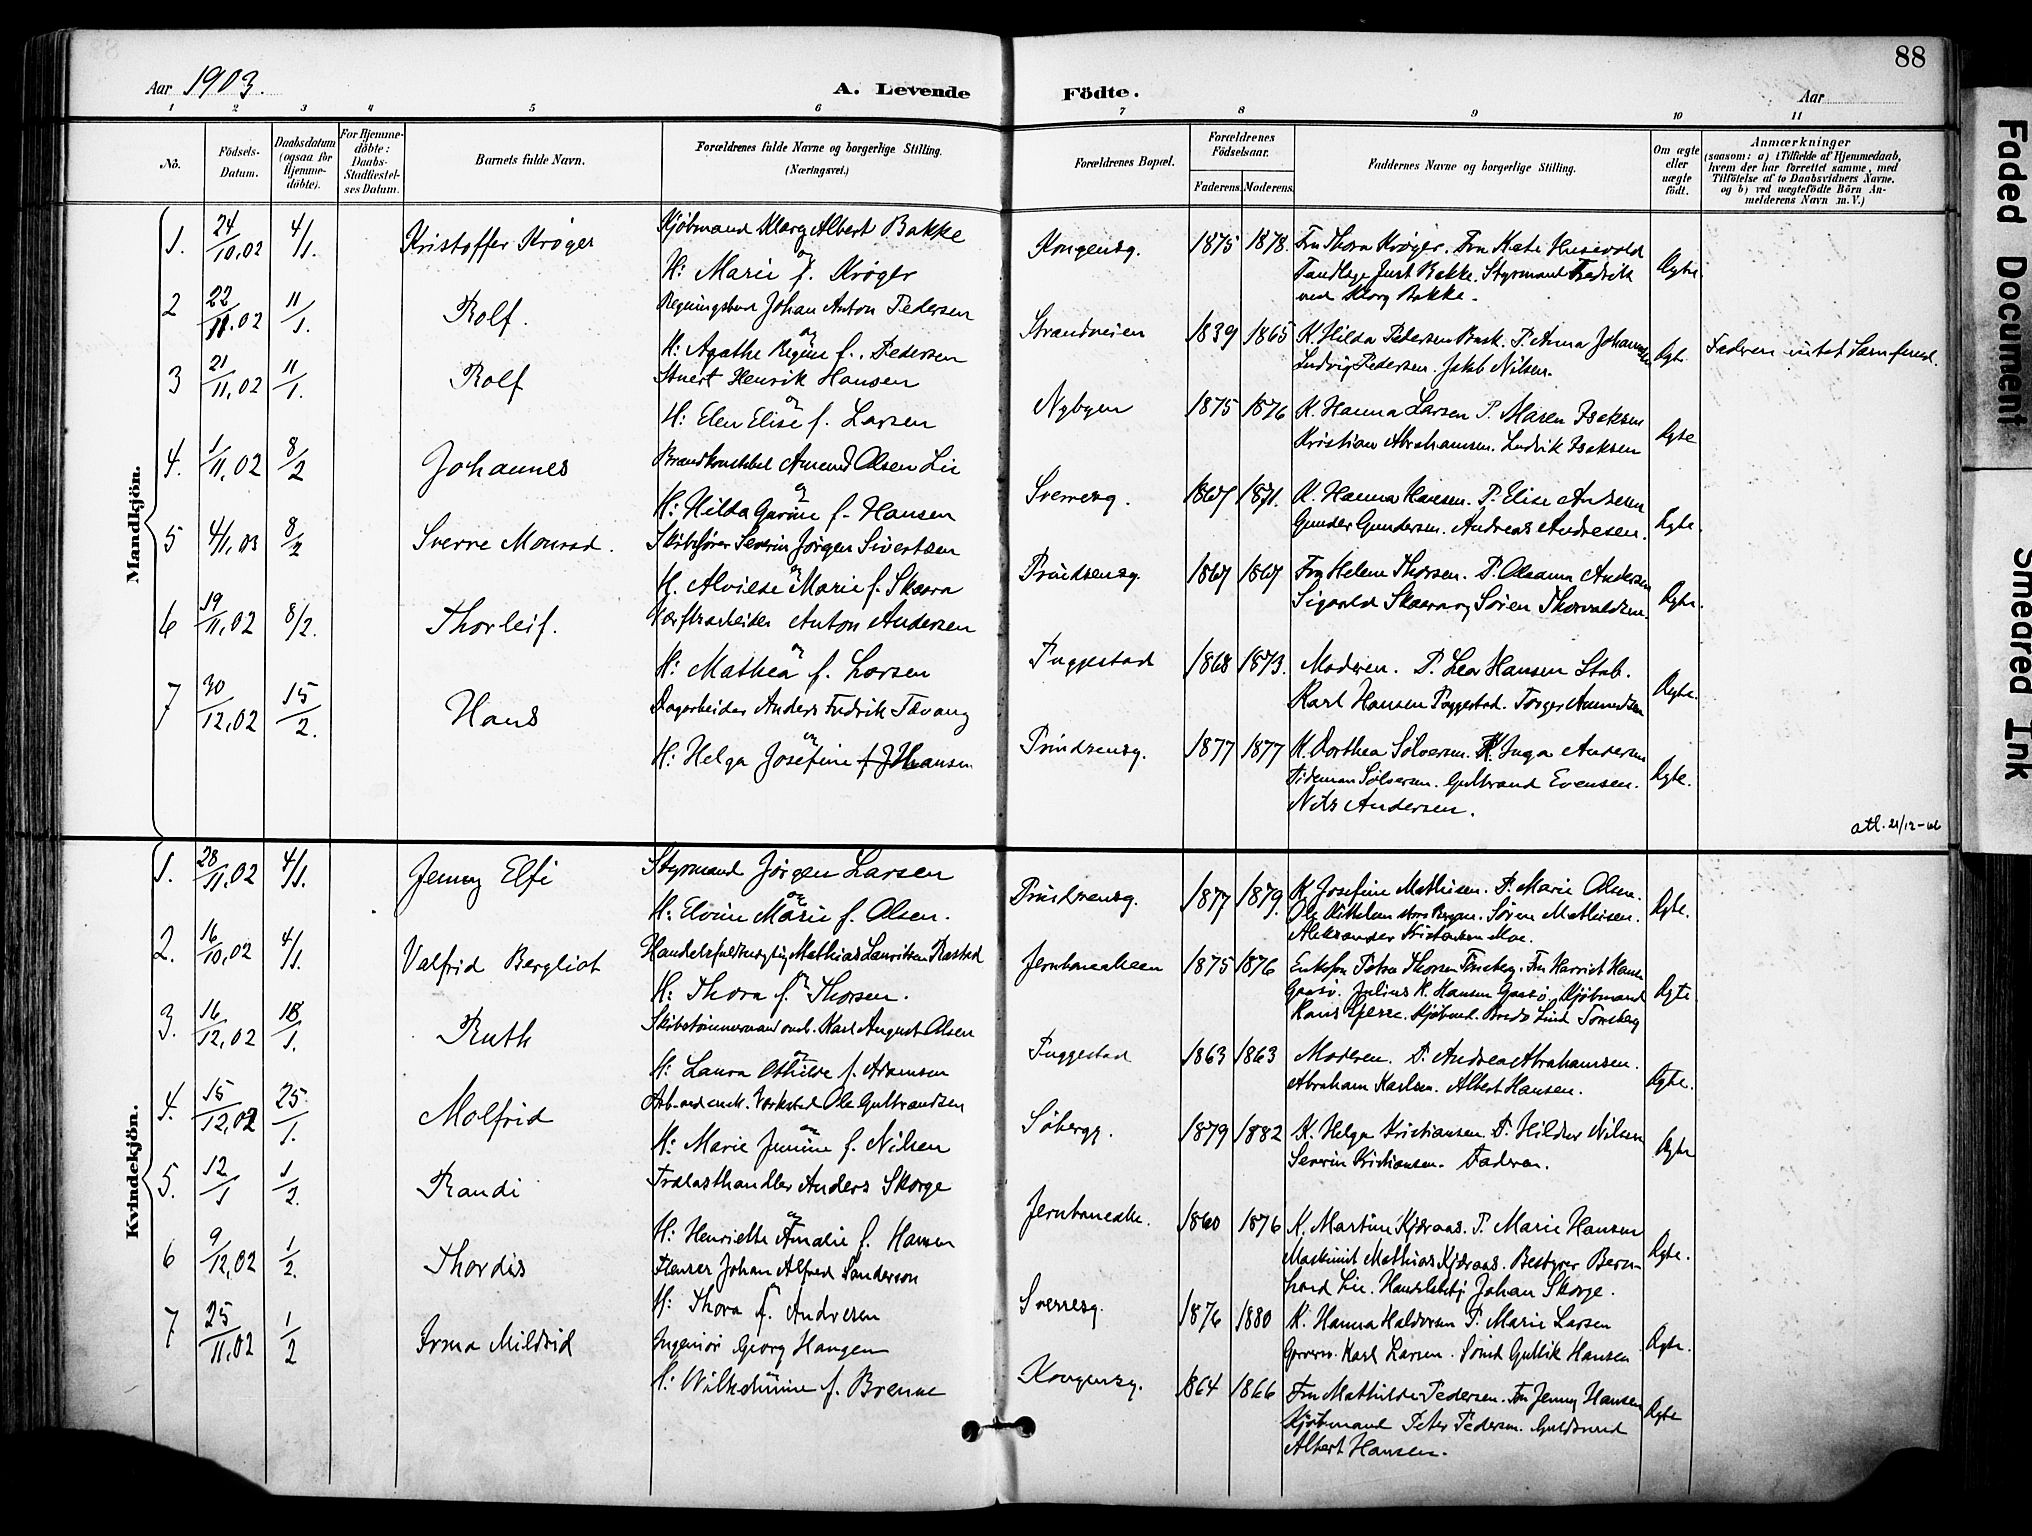 88
Aar 1903.
A. Levende Födte.
Aar
1 2 3 4 5 6 7 8 9 10 11
No.
Födsels-Datum.
Daabsdatum (ogsaa for Hjemme-döbte).
For Hjemme-döbte: Daabs-Stadfæstel-ses Datum.
Barnets fulde Navn.
Forældrenes fulde Navne og borgerlige Stilling.
(Næringsvei.)
Forældrenes Bopæl.
Forældrenes Födselsaar.
Faderens. Moderens.
Faddernes Navne og borgerlige Stilling.
Om ægte eller uægte födt.
Anmærkninger
(saasom: a) i Tilfælde af Hjemmedaab, hvem der har forrettet samme, med Tilföielse af to Daabsvidners Navne. og b) ved uægtefödte Börn An-melderens Navn m. V.)
Mandkjön.
1. 24/10,02 4/1. Kristoffer Krøger
Kjøbmand Albert Bakke
og
H: Marie f. Krøger
Kongensg. 1875 1878. Fru Thora Krøger. Fru Kate
Tandlæge Just Bakke. Styrmand Fredrik
Bakke.
Ægte
2 22/11.02 11/1. Rolf.
Johan Anton Pedersen
og
H: Agathe Regine f. Pedersen
Strandveien 1839 1865 K. Hilda Pedersen Bask. P. Anna
Ludvig Pedersen. Jakob Nilsen.
Ægte Faderen intet Samfund.
3 21/11,02 11/1. Rolf
Stuert Henrik Hansen
og
H: Elen Elise f. Larsen
Nybyen 1875 1876 K. Hanna Larsen P. Maren Isaksen
Kristian Abrahamsen. Ludvik Isaksen
Ægte
4. 1/11,02 8/2 Johannes
Brandkonstabel Amund Olsen Lie
og
H: Hilda Gurine f. Hansen
Sverresg. 1867 1871. K. Hanna Hansen. P. Elise Andersen
Gunder Gundersen. Andreas Andresen.
Ægte.
5 4/1,03 8/2 Sverre Monrad.
Skibsfører Severin Jørgen Sivertsen
og
H. Alvilde Marie f. Skaara
Prindsensg. 1867 1867 Fru Helene Thorsen. P. Oleanna Andersen
Sigvald Skaara og Søren Thorvaldsen.
Ægte.
6 19/11,02 8/2. Thorleif.
Værftsarbeider Anton Andersen
og
H: Mathea f. Larsen
Tuggestad 1868 1873. Moderen. P. Lea Hansen Stab.
Karl Hansen Tuggestad. Torger Amundsen
Ægte.
7 30/12,02 15/2. Hans
Dagarbeider Anders Fredrik Tævang
og
H: Helga Josefine f. Johansen
Prindsensg. 1877 1877 K. Dorthea Sølversen. K. Inga Andersen
Tideman Sølversen. Gulbrand Evensen.
Nils Andersen.
Ægte.
atl. 21/12-
Kvindekjön.
1. 28/11,02 4/1. Jenny Elfi
Styrmand Jörgen Larsen
og
H: Elvine Marie f. Olsen.
Prindsensg. 1877 1879. K. Josefine Mathisen. P. Marie Olsen.
Ole Kittelsen Søren Mathisen.
Aleksander Kristensen Moe.
Ægte.
2. 16/10,02 4/1. Valfrid Bergliot
Handelsfuldmægtig Mathias Lauritsen Rastad
og
H: Thora f. Thorsen.
Jernbanealleen 1875 1876 Enkefru Petra Thorsen Tønsberg. Fru Harriet Hansen
Gaasø. Julius K. Hansen Gaasø. Kjøbmand
Hans Kjøbmd. Lind Tønsberg
Ægte
3. 16/12,02 18/1. Ruth
Skibstømmermand Karl August Olsen
og
H: Laura Othilde f. Adamsen
Tuggestad 1863 1863 Moderen. P. Andrea Abrahamsen.
Abraham Karlsen. Albert Hansen.
Ægte.
4. 15/12,02 25/1. Molfrid
Arb. Ole Gulbrandsen
og
H: Marie Jensine f. Nilsen
Søbergg. 1879 1882 K. Helga Kristiansen. P. Hildur Nilsen
Severin Kristiansen. Faderen.
Ægte
5. 12/1 1/2 Randi
Trælasthandler Anders Skorge
og
H: Henriette Amalie f. Hansen
Jernbanealle. 1860 1876 K. Martine Kjæraas. P. Marie Hansen
Maskinist Mathias Kjæraas. Bestyrer Bern-
hard Lie. Handelsbetj Johan Skorge.
Ægte.
6 9/12,02 1/2. Thordis
Flenser Johan Alfred Sanderson
og
H: Thora f. Andresen
Sverresg. 1876 1880 K. Hanna Haldorsen P. Marie Larsen
Karl Larsen. Smed Gullik Hansen
Ægte.
7 25/11,02 1/2 Irma Mildrid
Ingeniør Georg Haugen
og
H: Wilhelmine f. Brenne
Kongensg. 1864 1866 Fru Mathilde Pedersen. Fru Jenny Hansen
Kjøbmand Peter Pedersen. Guldsmed
Albert Hansen.
Ægte
Faded Document
Smeared Ink